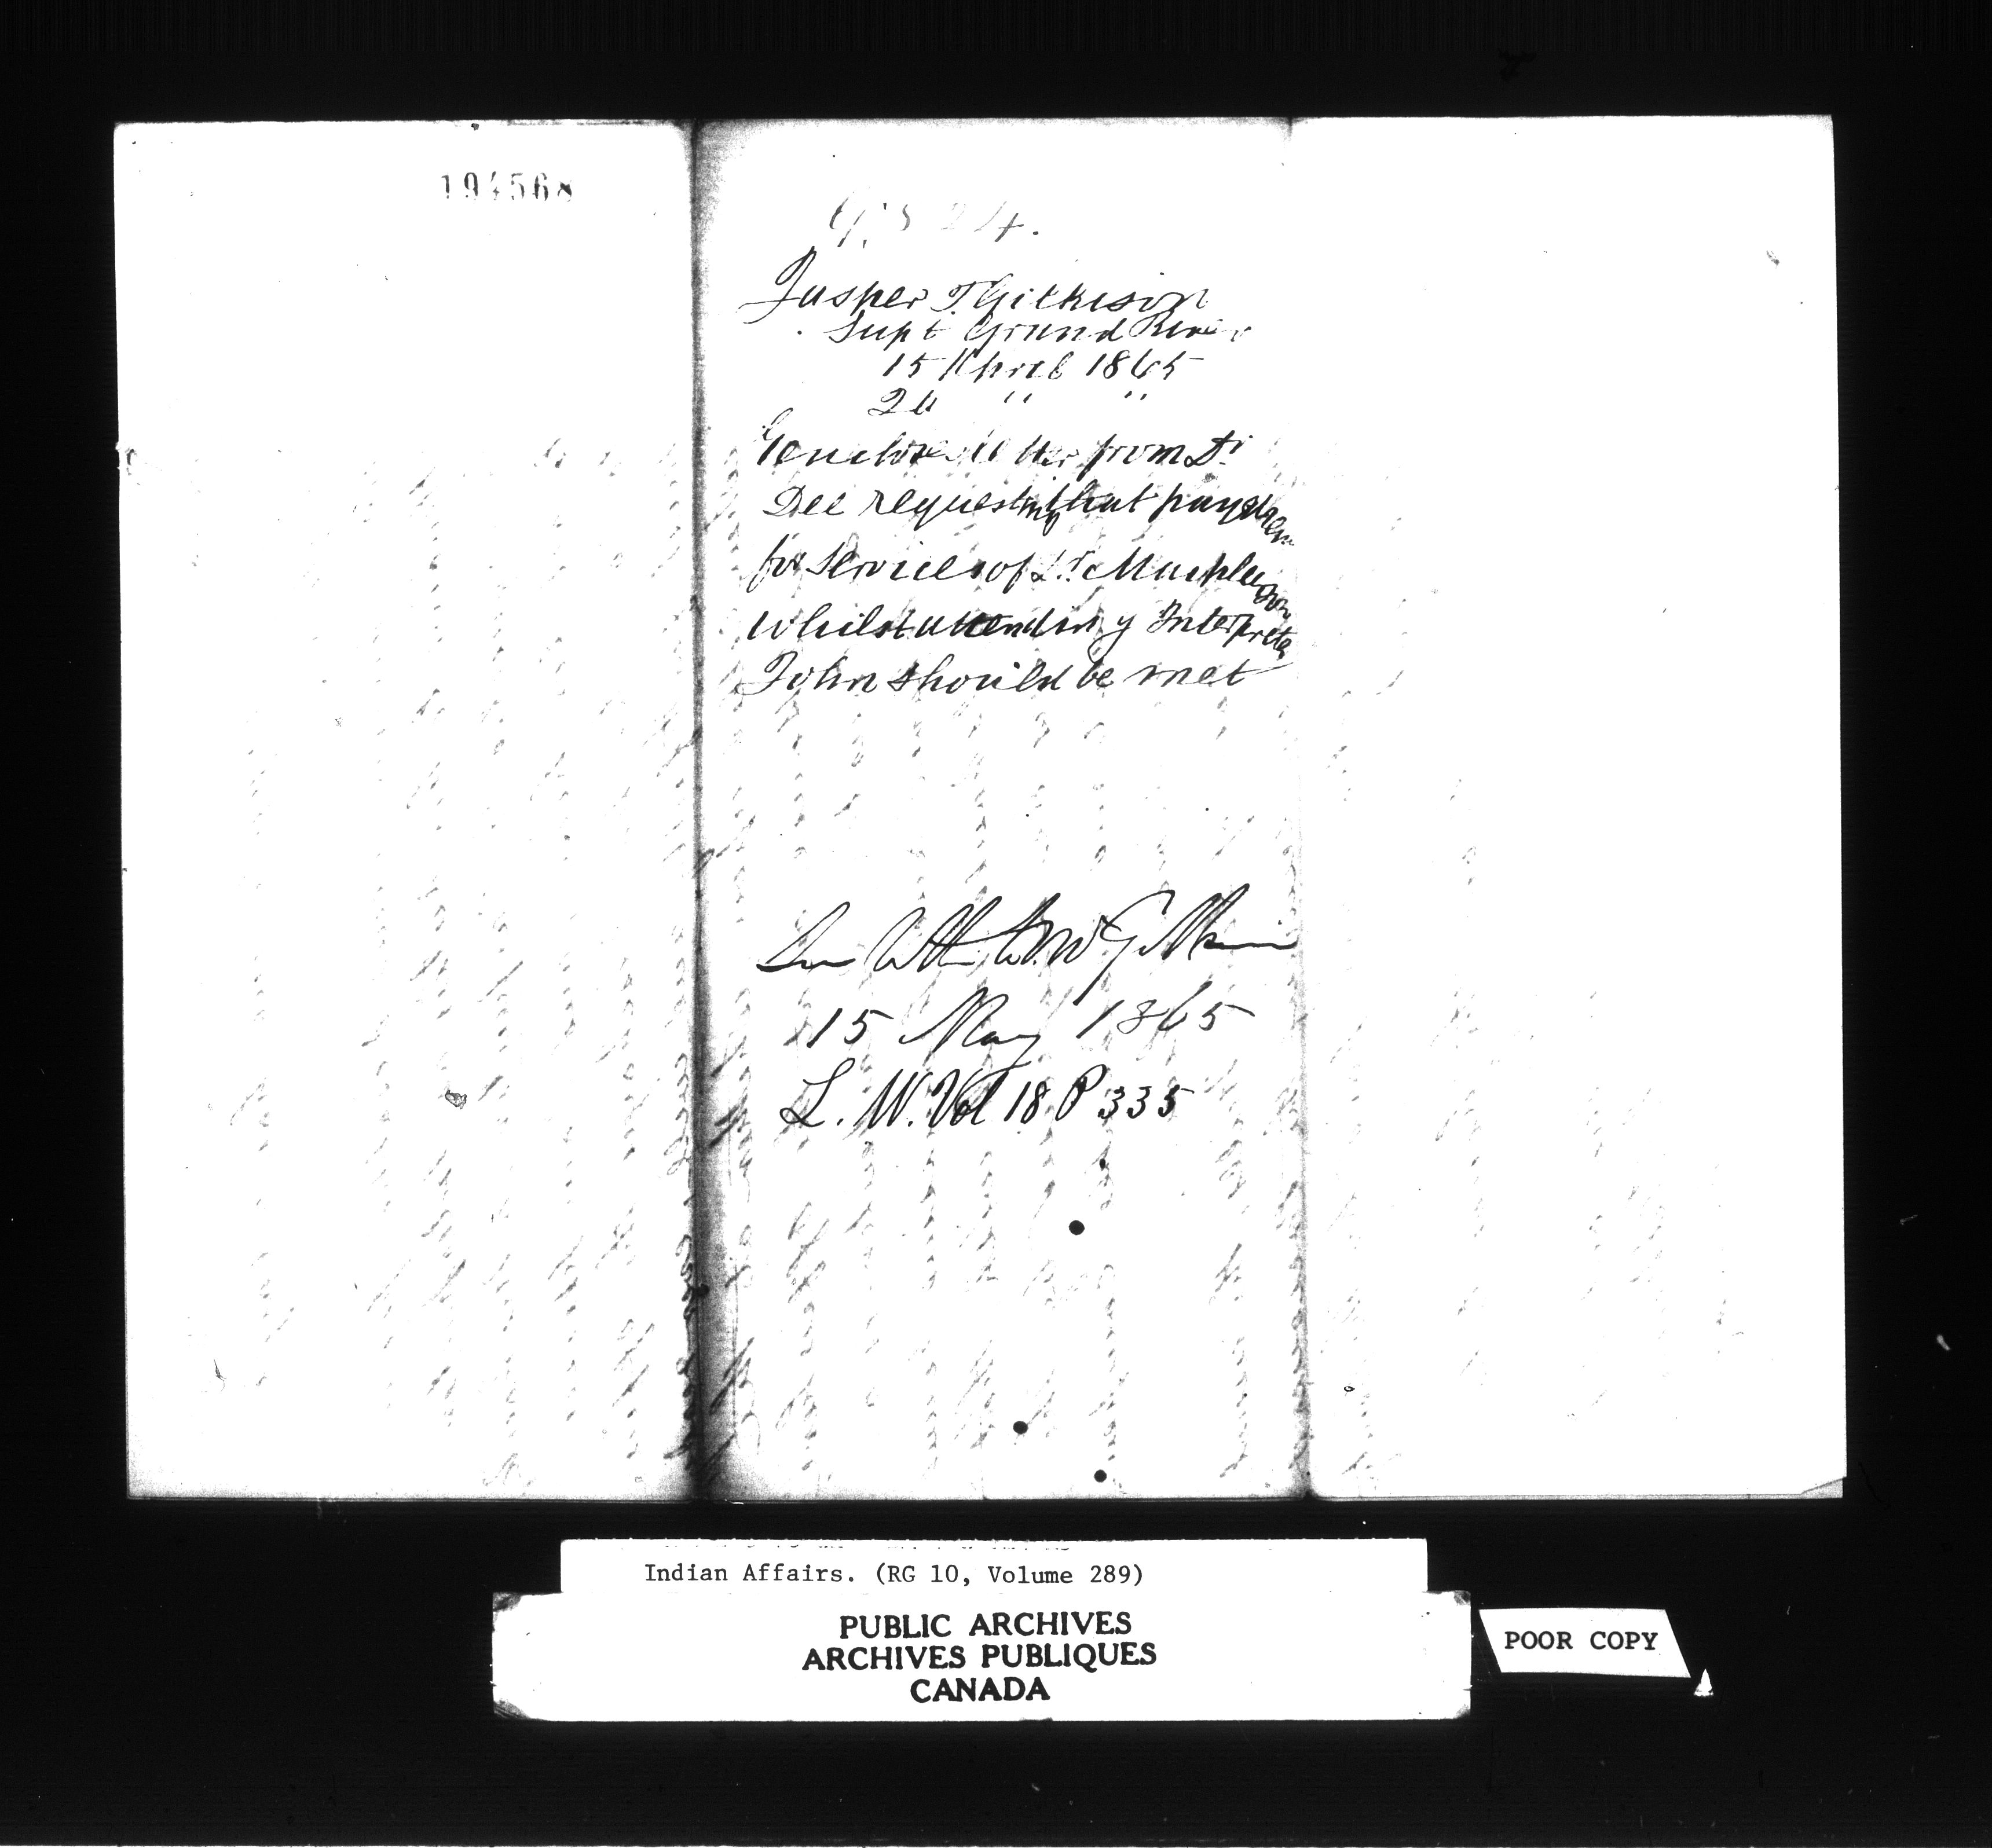 194568
Jasper T. Gilkison
Supt Grand River
15 April 1865
20 " "
Enclose letter from Dr
Dee requesting that payment
for Services of Dr
Whilst attending Interpreter
John should be met
See Letter to Gilkison
15 May 1865
L. W. Vol 18 P 335
Indian Affairs. (RG 10, Volume 289)
PUBLIC ARCHIVES
ARCHIVES PUBLIQUES
CANADA
POOR COPY